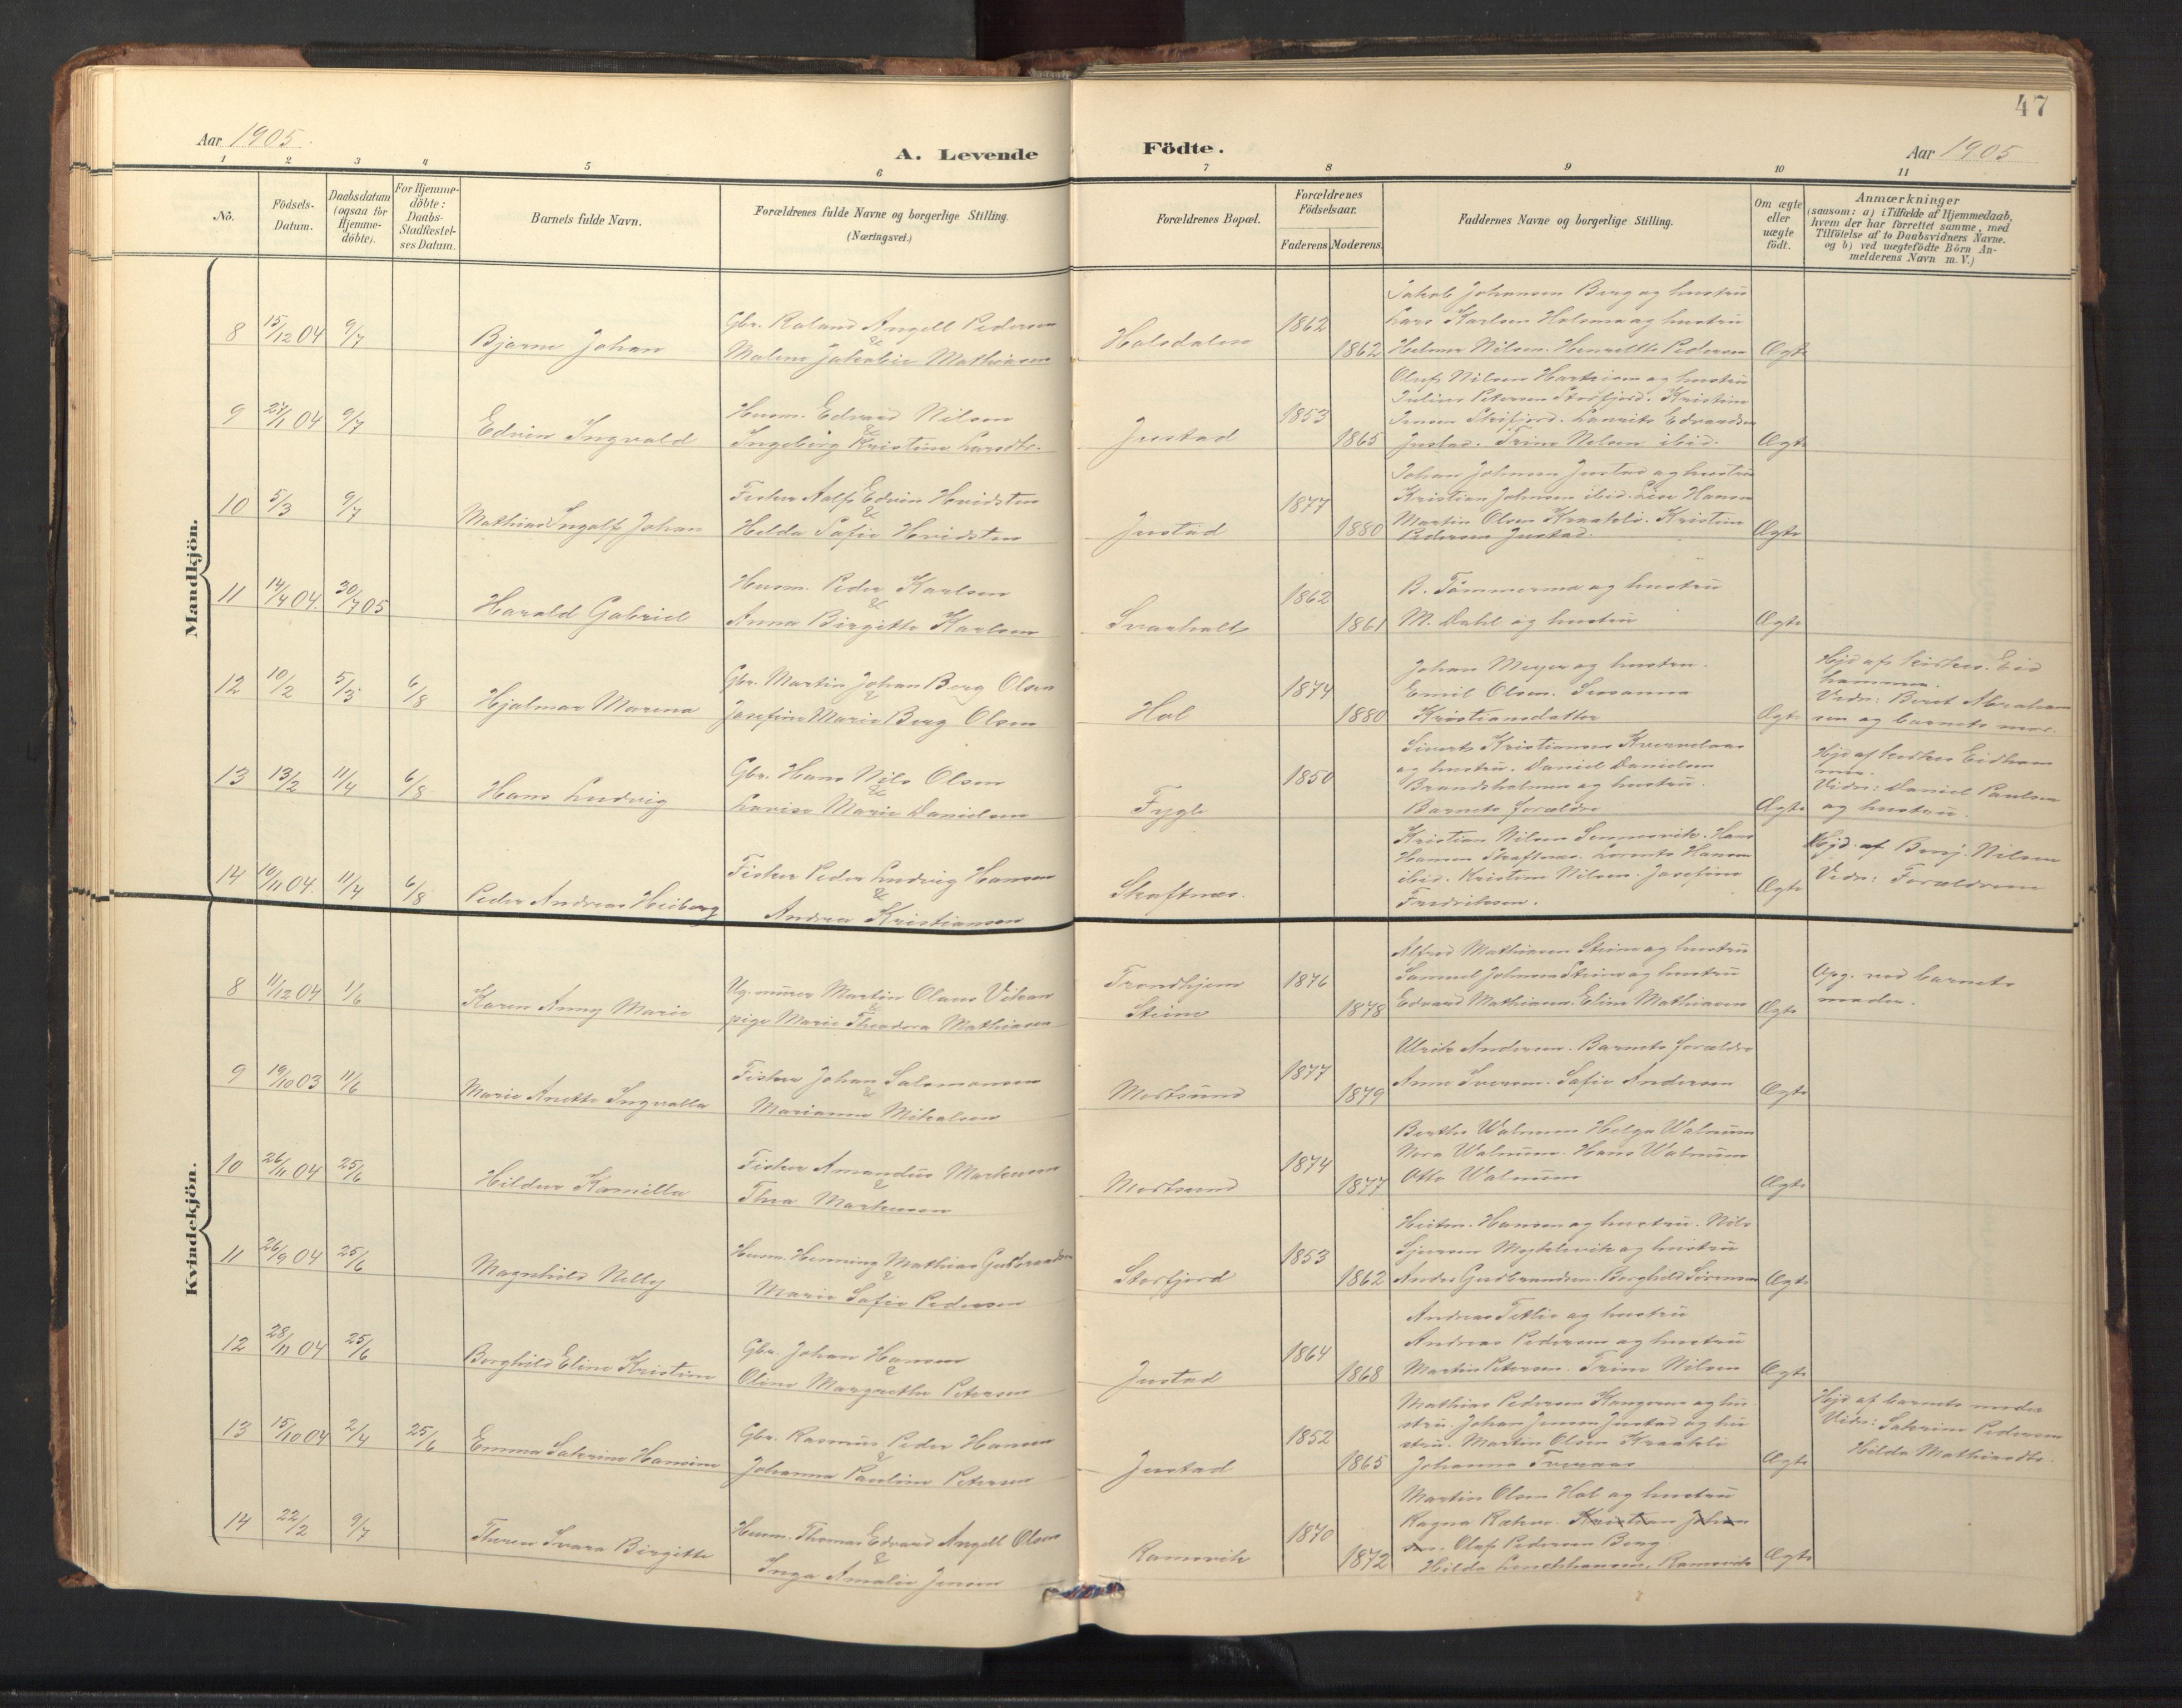 47
Aar 1905.
A. Levende
Födte.
Aar 1905
1 2 3 4 5 6 7 8 9 10 11
No.
Födsels-Datum.
Daabsdatum (ogsaa for Hjemme-döbte).
For Hjemme-döbte: Daabs-Stadfestel-ses Datum.
Barnets fulde Navn.
Forældrenes fulde Navne og borgerlige Stilling.
(Næringsvei.)
Forældrenes Bopæl.
Forældrenes Födselsaar.
Faderens Moderens.
Faddernes Navne og borgerlige Stilling.
Om ægte eller uægte födt.
Anmærkninger
(saasom: a) i Tilfælde af Hjemmedaab,
hvem der har forrettet samme, med
Tilföielse af to Daabsvidners Navne.
og b) ved uægtefödte Börn An-
melderens Navn m.V.)
Mandkjön.
8 15/12 04 9/7 Bjarne Johan
Gbr. Roland Angell Pedersen
&
Malene Jakobie Mathiasen
Holsdalen 1862 1862
Jakob Johansen Berg og hustru
Lars Karlsen Holsmo og hustru
Helmer Nilsen. Henrette Pedersen Ægte
9 9/7 Edvin Ingvald
Husm. Edvard Nilsen
&
Ingeborg Kristine Larsdtr.
Justad 1853 1865
Oluf Nilsen og hustru
Julius Petersen Storfjord. Kristine
Jensen Storfjord. Laurits Edvardsen
Justad. Trine Nilsen ibid. Ægte
10 5/3 9/7 Mathias Ingolf Johan
Fisker Adolf Edvin Hvidsten
&
Hilda Sofie Hvidsten
Justad 1877 1880
Johan Johnsen Justad og hustru
Kristian Johnsen ibid. Lise Hansen
Martin Olsen Kraakli. Kristine
Pedersen Justad. Ægte
11 14/4 04. 30/7 05 Harald Gabriel
Husm. Peder Karlsen
&
Anna Birgitte Karlsen
Svarholt 1862 1861
B. Tömmermo og hustru
M. Dahl og hustru Ægte
12 10/2 5/3 6/8 Hjalmar Marena
Gbr. Martin Johan Berg Olsen
&
Josefine Marie Berg Olsen
Hol 1874 1880
Johan Meyer og hustru.
Emil Olsen. Susanna
Kristiansdatter Ægte
Hjd af kirkes. Eid
hammer.
Vidn: Beret Abraham
sen og barnets mor.
13 13/2 11/4 6/8 Hans Ludvig
Gbr. Hans Nils Olsen
&
Lovise Marie Danielsen
Fygle 1850
Sivert Kristiansen
og hustru. Daniel Danielsen
Brandsholmen og hustru.
Barnets forældre Ægte
Hjd af kirkes Eidham
mer.
Vidn: Daniel Paulsen
og hustru.
14 10/11 04. 11/4 6/8 Peder Andreas Heiberg
Fisker Peder Ludvig Hansen
&
Andrea Kristiansen
Skaftnes.
Kristian Nilsen Sennesvik. Hans
Hansen Skaftnes. Lorents Hansen
ibid. Kristine Nilsen. Josefine
Fredriksen. Ægte
Hjd. af Benj. Nilsen
Vidn: Forældrene
Kvindekjön.
8 11/12 04 1/6 Karen Anny Marie
Ug. murer Martin Olaus Vikan
&
pige Marie Theodora Mathiasen
Trondhjem
Steine 1876 1878
Alfred Mathiasen Steine og hustru
Samuel Johnsen Steine og hustru
Edvard Mathiasen. Eline Mathiasen Ægte
Opg. ved barnets
moder.
9 19/10 03 11/6 Marie Anette Ingvalla
Fisker Johan Salomonsen
&
Marianne Mikalsen
Mortsund 1877 1879
Ulrik Andersen. Barnets forældre
Anne Iversen. Sofie Andersen Ægte
10 26/11 04 25/6 Hildur Kamilla
Fisker Amandus Markussen
&
Thea Markussen
Mortsund 1874 1877
Berthe Walnum Helga Walnum
Nora Walnum. Hans Walnum
Otto Walnum Ægte
11 26/9 04 25/6 Magnhild Nelly
Husm. Henning Mathias Gudbrandsen
&
Marie Sofie Pedersen
Storfjord 1853 1862
Heitm. Hansen og hustru. Nils
og hustru
Andor Gudbrandsen. Borghild Sörensen Ægte
12 28/11 04 25/6 Borghild Eline Kristine
Gbr. Johan Hansen
&
Oline Margrethe Petersen
Justad 1864 1868
Andreas Tetlie og hustru
Andreas Pedersen og hustru
Martin Petersen. Trine Nilsen Ægte
13 15/10 04 2/4 25/6 Emma Katerine Hansine
Gbr. Rasmus Peder Hansen
&
Johanna Pauline Petersen
Justad 1852 1865
Mathias Pedersen Kangerur og hu
stru. Johan Jensen Justad og hu
stru. Martin Olsen Kraakli
Johanna Tveraas Ægte
Hjd af barnets moder
Vidn: Katerine Pedersen
Hilda Mathiasdtr.
14 22/2 9/7 Thoren Svara Birgitte
Husm. Thomas Edvard Angell Olsen
&
Inga Amalie Jensen
Ramsvik 1870 1872
Martin Olsen Hol og hustru
Ragna Rækne. Kristian Johan
sen. Oluf Pedersen Berg.
Hilda Lorchhausen, Ramsvik Ægte